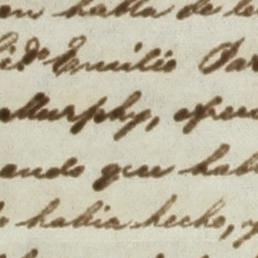 en habla de le
Lido Emilio Par
Murphy, oper
ando que hab
habia hecho, y